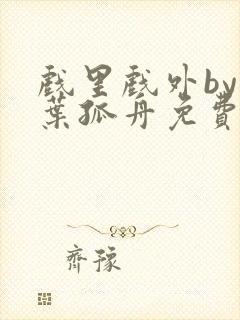 戲里戲外by
葉孤舟免費
齊豫